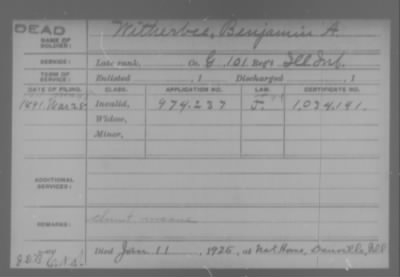 DEAD
NAME OF SOLDIER: Witherbee, Benjamin A.
SERVICE: Late rank, Co. G, 101 Reg't Ill Inf.
TERM OF SERVICE: Enlisted , 1 Discharged , 1
DATE OF FILING. CLASS. APPLICATION NO. LAW. CERTIFICATE NO.
1891. Mar 28 Invalid, 974.237 J. 1,034,191.
Widow,
Minor,
ADDITIONAL SERVICES:
REMARKS:
Died Jan 11, 1925, at Nat Home, Danville, Ill